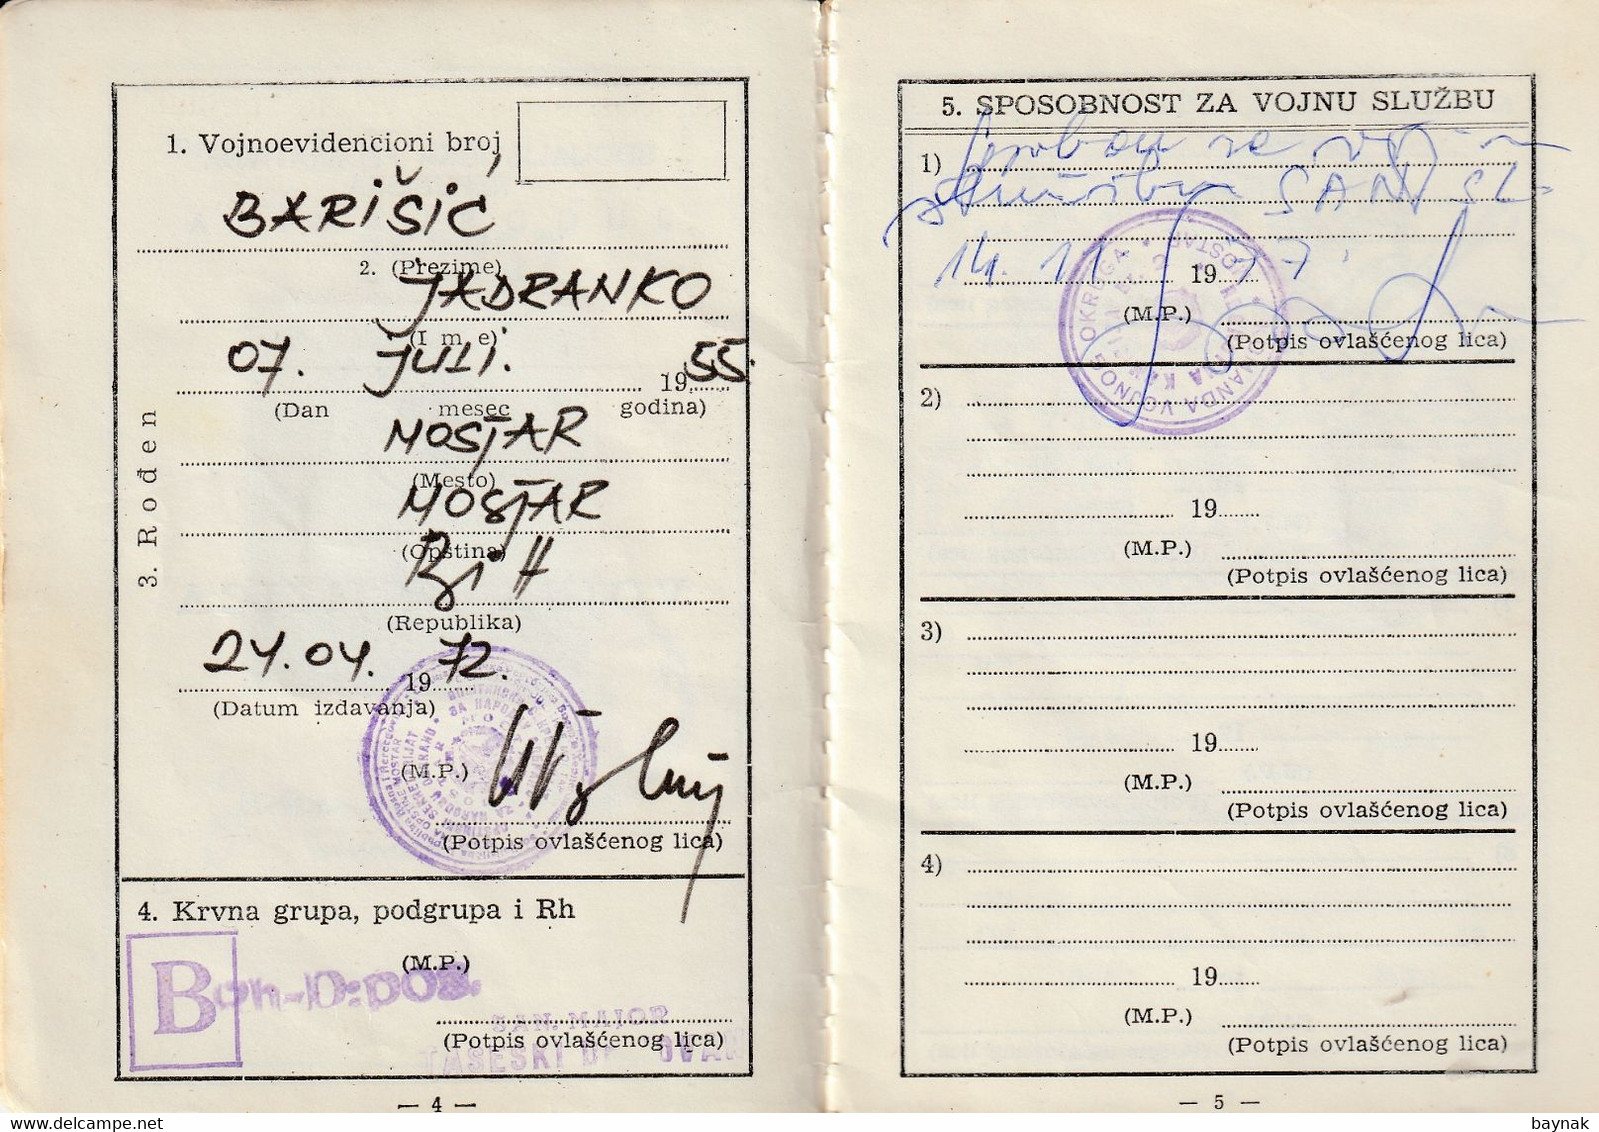 1. Vojnoevidencioni broj
BARIŠIĆ
2. (Prezime)
JADRANKO
(Ime)
07. JULI. 1955.
(Dan mesec godina)
MOSTAR
(Mesto)
MOSTAR
(Opština)
B i H
(Republika)
3. Rođen
24.04. 1972.
(Datum izdavanja)
(M.P.)
(Potpis ovlašćenog lica)
4. Krvna grupa, podgrupa i Rh
B
(M.P.)
SAN. MAJOR
TASESKI
(Potpis ovlašćenog lica)
— 4 —
5. SPOSOBNOST ZA VOJNU SLUŽBU
1) Sposoban za
službu SAN SL-
14. 11 1977.
(M.P.)
(Potpis ovlašćenog lica)
KOMANDA VOJNOG OKRUGA MOSTAR
2)
19
(M.P.)
(Potpis ovlašćenog lica)
3)
19
(M.P.)
(Potpis ovlašćenog lica)
4)
19
(M.P.)
(Potpis ovlašćenog lica)
— 5 —
www.delcampe.net
baynak